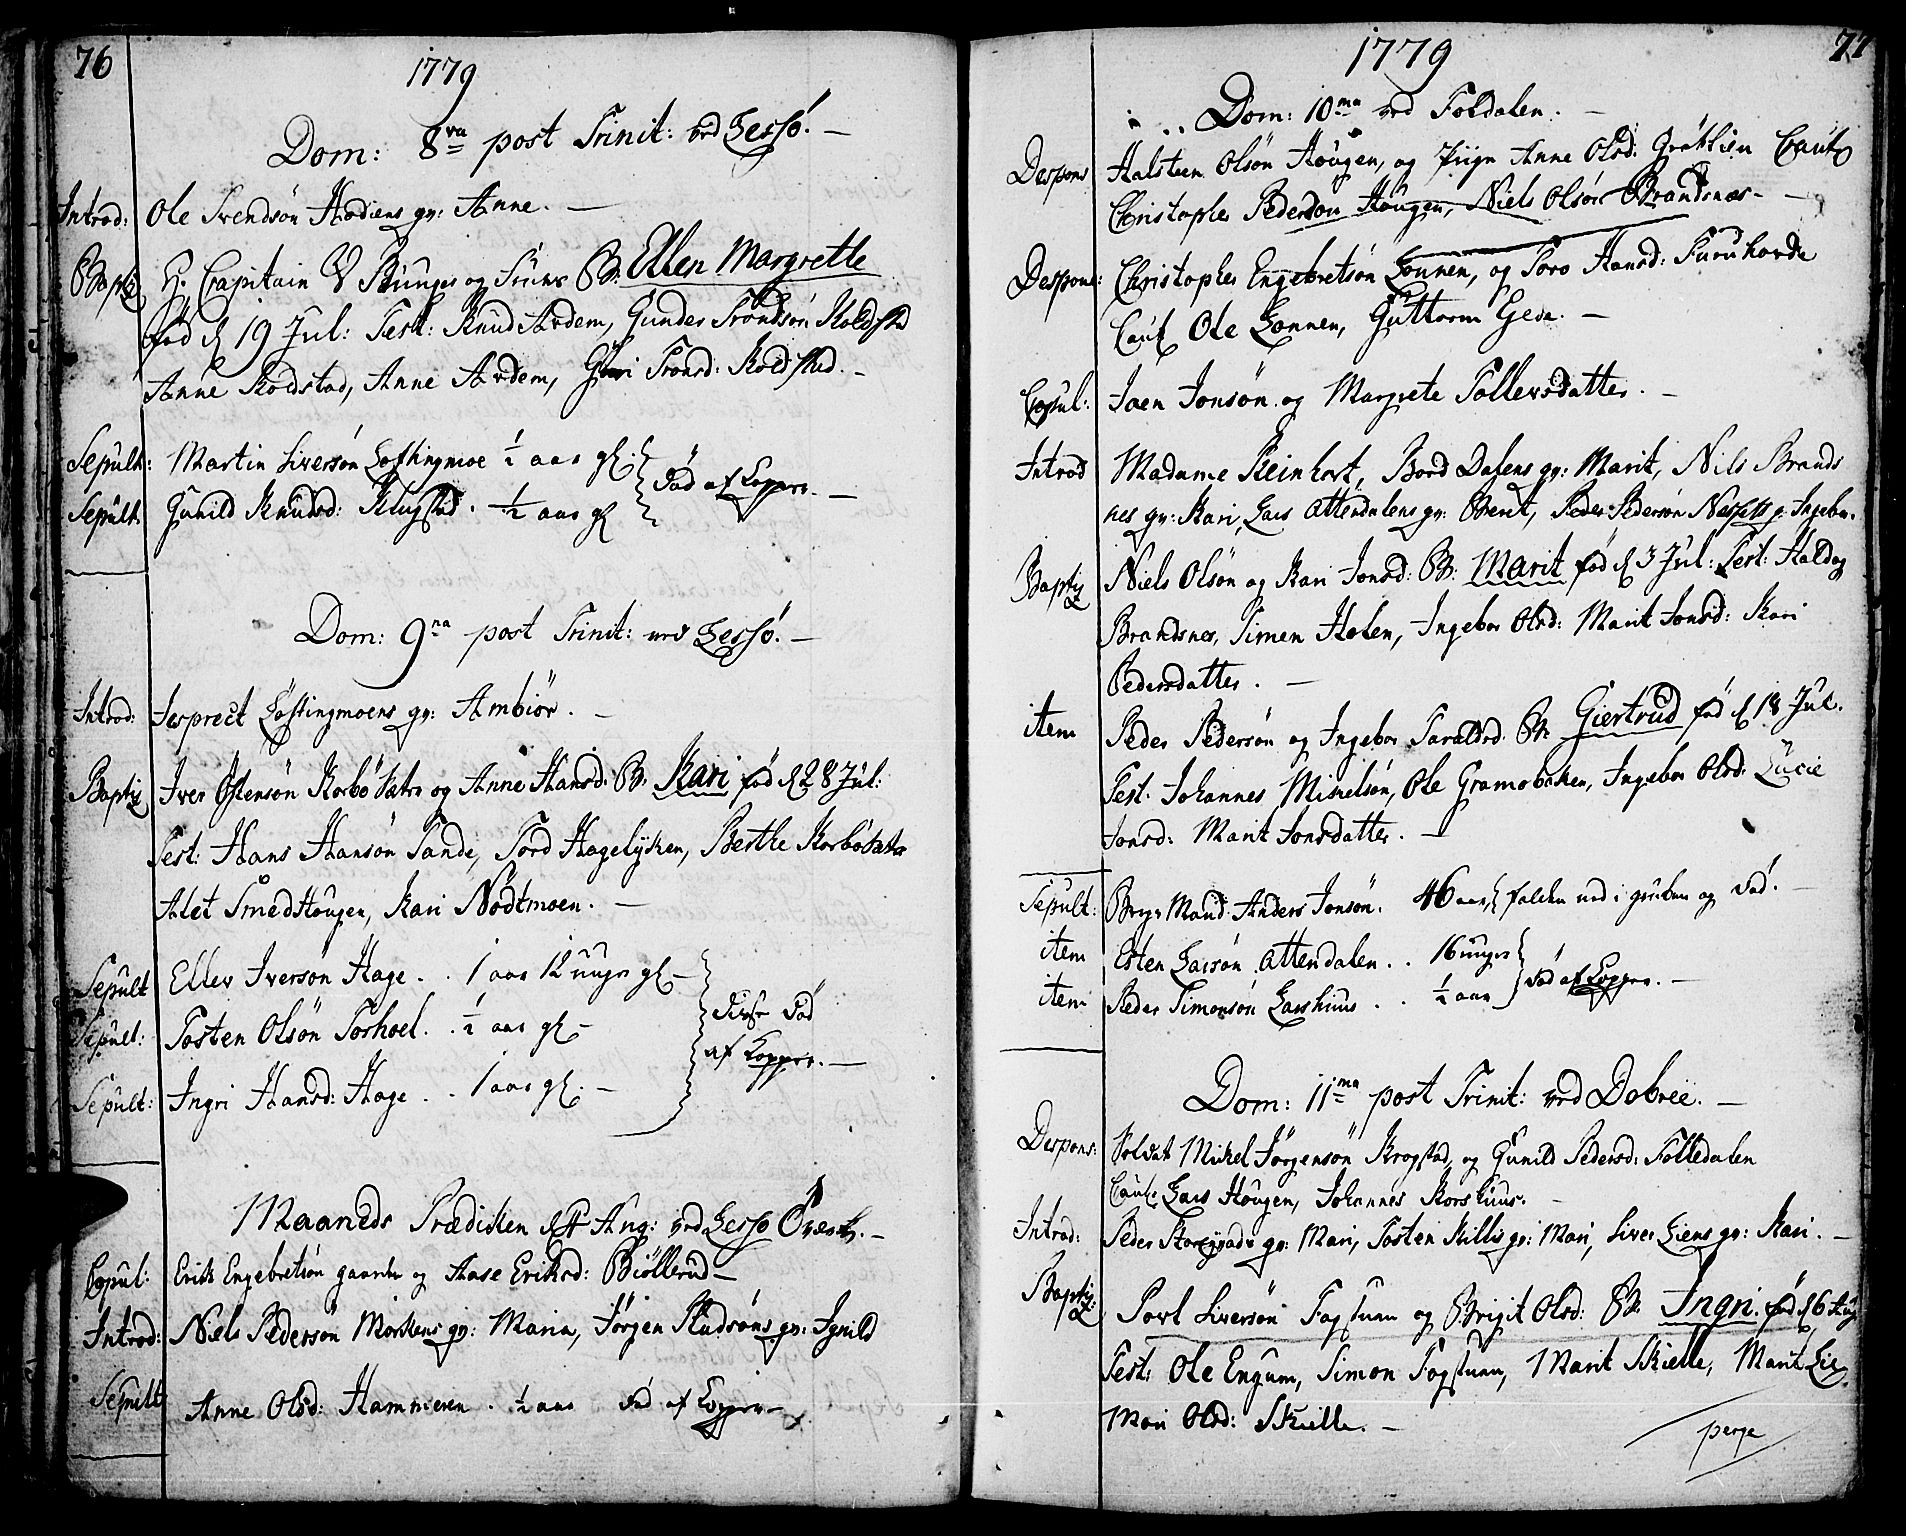 76
1779
Dom: 8va post Trinit: ved Lessö. —
Introd: Ole Svendsön Hodiens gv: Anne. —
Baptiz H. Capitain Stunges og Frues B. Ellen Margrette
fød d 19 Jul: Test: Knud Ardem, Gunder Trondsön Kolstad
Anne Kodstad, Anne Ardem, Guri Tronsd: Kolsted. —
Sepult: Martin Siversön Loftingmoe ½ aar gl.
Sepult. Gunild Knudsd: Klugstad. ½ aar gl
död af Kopper. —
Dom: 9na post Trinit: ved Lessö. —
Introd: Jesprect Löftingmoens gv: Ambiör. —
Baptiz Iver Östensön Korbö Sætre og Anne Hansd: B. Kari fød d 28 Jul:
Test: Hans Hansön Sande, Tord Hagelÿken, Berthe Korbösæter
Alet SmedHougen, Kari Nödtmoen. —
Sepult Ellev Iversön Hage. . 1 aar 12 uuger gl —
Sepult: Tosten Olsön Torhoel. . ½ aar gl —
Sepult: Ingri Hansd: Hage. . 1 aar gl. —
disse död
af Kopper. —
Maaneds Prædiken d Aug: ved Lessö Verk. —
Copul: Erik Engebretsön gaarder og Aase Eriksd: Biöllerud —
Introd: Niels Pedersön Morkens gv: Maria, Jörgen Knudsöns gv: Ignild
Sepult Anne Olsd: Hammeren. ½ aar död af Kopper —
77
1779
Dom: 10ma ved Foldalen. —
Despons Halsteen Olsön Hougen, og Piign Anne Olsd: Gröttlien Caut
Christopher Pedersön Hougen, Niels Olsön Brandsnæs —
Despons: Christopher Engebretsön Lonnen, og Toro Hansd: Furuhovde
Caut Ole Lonnen, Guttorm Gede. —
Copul: Joen Jonsön og Margrete Tollevsdatter. —
Introd Madame Steinhort, Bord Dalens gv: Marit, Nils Brands
nes gv: Kari, Lars Attendalens gv: Berit, Peder Pedersön Nesset g: Ingebor.
Baptiz Niels Olsön og Kari Jonsd: B. Marit fød d 3 Jul: Test: Haldog
Brandsnes, Simen Holen, Ingebor Olsd: Marit Jonsd: Kari
Pedersdatter. —
item Peder Pedersön og Ingebor Taraldsd. B. Giertrud fød d 18 Jul.
Test. Johannes Mikelsön, Ole Gramobaken, Ingebor Olsd: Lucie
Jonsd: Marit Jonsdatter. —
Sepult: Berg Mand Anders Jonsön. 46 aar falden ned i gruben og död. —
item Esten Larsön Attendalen. . 16 uuger
item Peder Simonsön Larshuus. . ½ aar
död af Kopper. —
Dom: 11ma post Trinit: ved Dobree. —
Despons: Soldat Mikel Jörgensön Krogstad, og Gunild Pedersd: Tolledalen
Caut: Lars Hougen, Johannes Korshuus. —
Introd: Peder gv: Mari, Tosten Killis gv: Mari, Siver Liens gv: Kari. —
Baptiz: Povl Siversön Fogstuen og Brigit Olsd: B. Ingri. fød d 6 Aug
Test: Ole Engum, Simon Fogstuen, Marit Skielle, Marit Lie
Mari Olsd: Skielle. —
perge